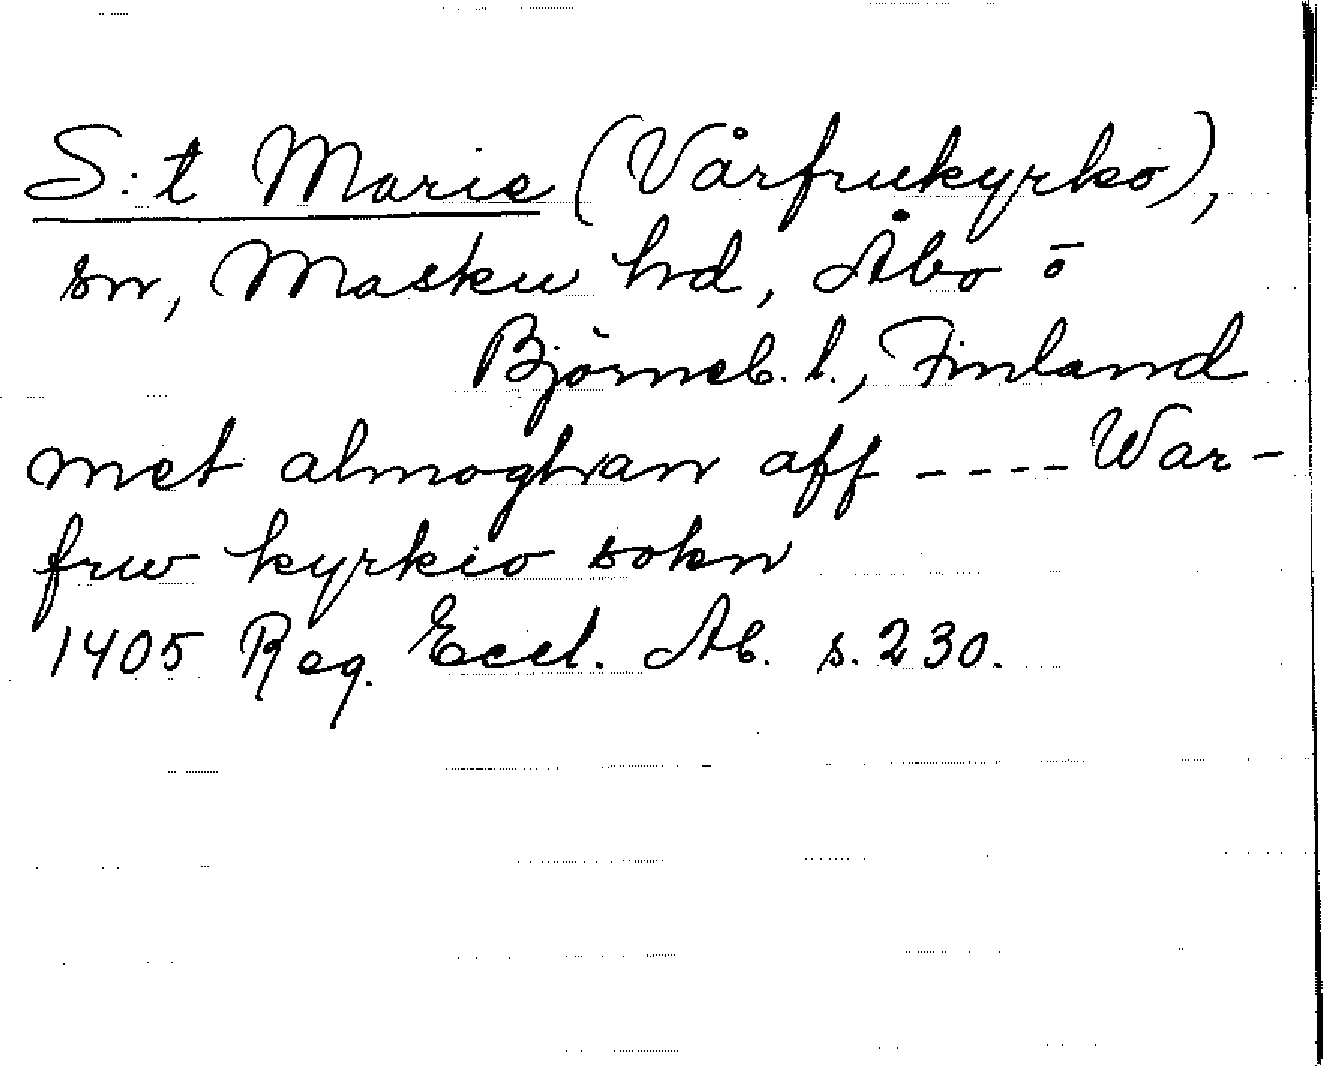 S:t Marie (Vårfrukyrko),
sn, Masku hd, Åbo o
Björneb. l., Finland
met almoghan aff ---- War-
frw kyrkio sokn
1405 Reg. Eccl. Ab. s. 230.